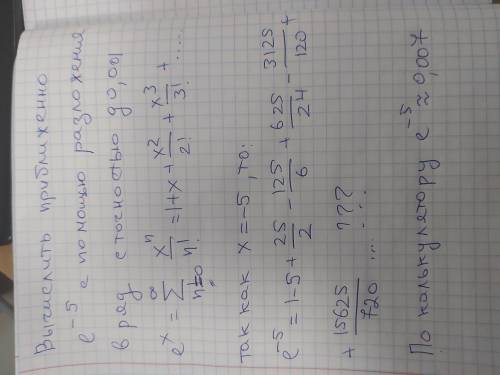 Вычислить приближенно
e⁻⁵ с помощью разложения
в ряд с точностью до 0,001
eˣ = ∑_{n=0}^{∞} xⁿ/n! = 1+x+x²/2!+x³/3!+.....
так как x=-5, то:
e⁻⁵ = 1-5+25/2-125/6+625/24-3125/120+
+15625/720 .... ???
По калькулятору e⁻⁵≈0,007